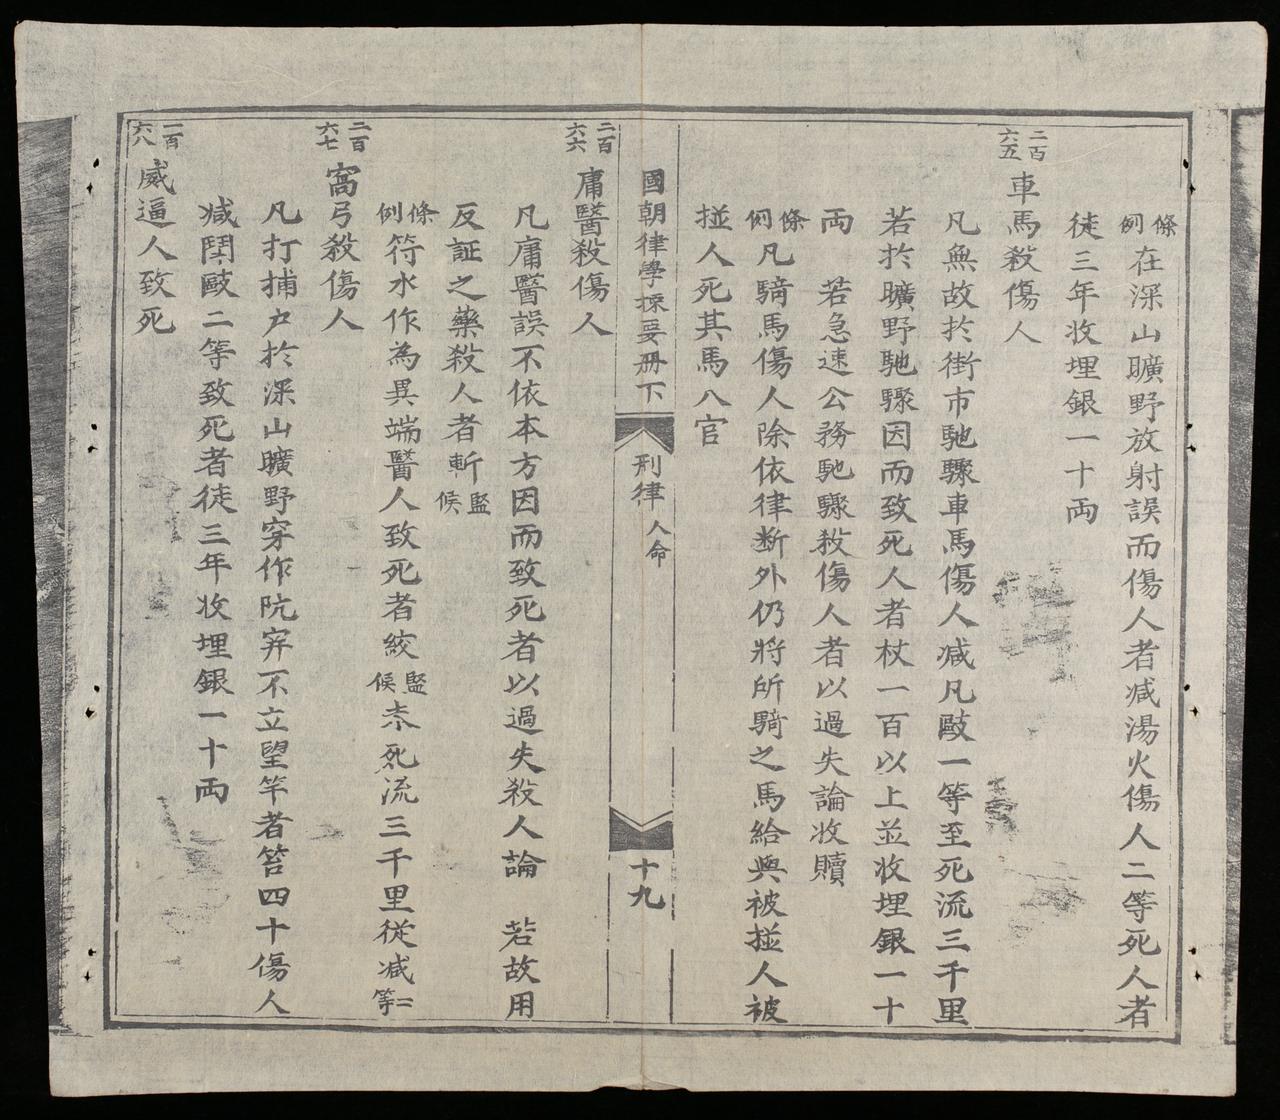 條例在深山曠野放射誤而傷人者减湯火傷人二等死人者
徒三年收埋銀一十両
二百六五 車馬殺傷人
凡無故扵街市馳驟車馬傷人减凡毆一等至死流三千里
若扵曠野馳驟因而致死人者杖一百以上並收埋銀一十
両 若急速公務馳驟殺傷人者以過失論收贖
條例凡騎馬傷人除依律断外仍將所騎之馬給與被掽人被
掽人死其馬入官
國朝律學揀要册下 刑律 人命 十九
二百六六 庸醫殺傷人
凡庸醫誤不依本方因而致死者以過失殺人論 若故用
反証之藥殺人者斬監候
條例符水作為異端醫人致死者絞監候未死流三千里從减二等
二百六七 窩弓殺傷人
凡打捕户扵深山曠野穿作阬穽不立望竿者笞四十傷人
减鬦毆二等致死者徒三年收埋銀一十両
二百六八 威逼人致死